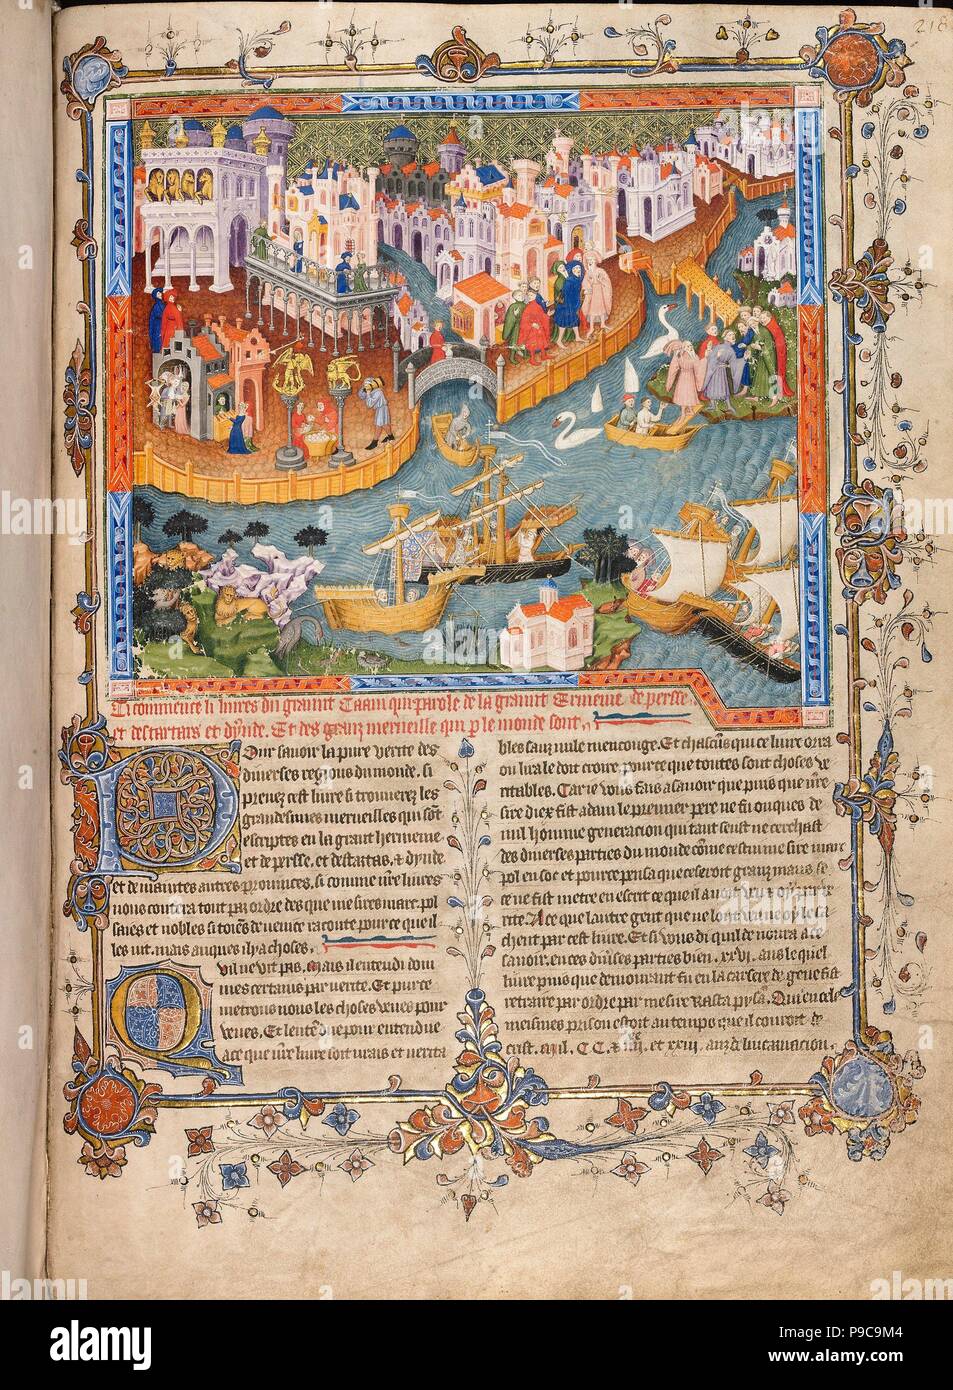 218
Ci commence li liures du graunt Caam qui parole de la graunt Ermenie de persse
et des tartars et dynde. Et des granz merueille qui p le monde sont.
Our sauoir la pure verite des
diuerses regions du monde. si
prenez cest liure si trouuerez les
grandesmes merueilles qui sont
escriptes en la grant hermenie
et de persse. et des tatars. et dynde.
et de maintes autres prouinces. si comme nre liures
nous contera tout par ordre des que mesires marc pol
saiges et nobles citoiens de venice raconte pour ce que il
les vit. mais auques il ya choses.
vil ne vit pas. mais il entendi dom
mes certains par verite. Et pur ce
metrons nous les choses veues pour
veues. Et lentendue pour entendue
a ce que nre liure soit vrais et verita
bles sanz nule mencouge. Et chascuns qui ce liure orra
ou lira le doit croire. pour ce que toutes sont choses ve
ritables. Car ie vous fais a sauoir que puis que nre
sire diex fist adam le premier pere ne fu onques de
nul homme generacion qui tant seust ne cerchast
des diuerses parties du monde come cestui mesire marc
pol en sot et pour ce pensa que ce seroit granz maus se
ce ne fist metre en escrit ce que il auoit veu et oy par ve
rite. A ce que lautre gent que ne lont veue oy le sa
chent par cest liure. Et si vous di qui l demoura a ce
sauoir. en ces diuses parties bien .xxvi. ans le quel
liure puis que demourant fu en la carsere de gene fist
retraire par ordre par mesire Rasta pysan. Qui en cele
meismes prison estoit au temps que il couroit de
crist. mil. CC. et et xxiii. anz de lincarnacion.
alamy
P9C9M4
www.alamy.com